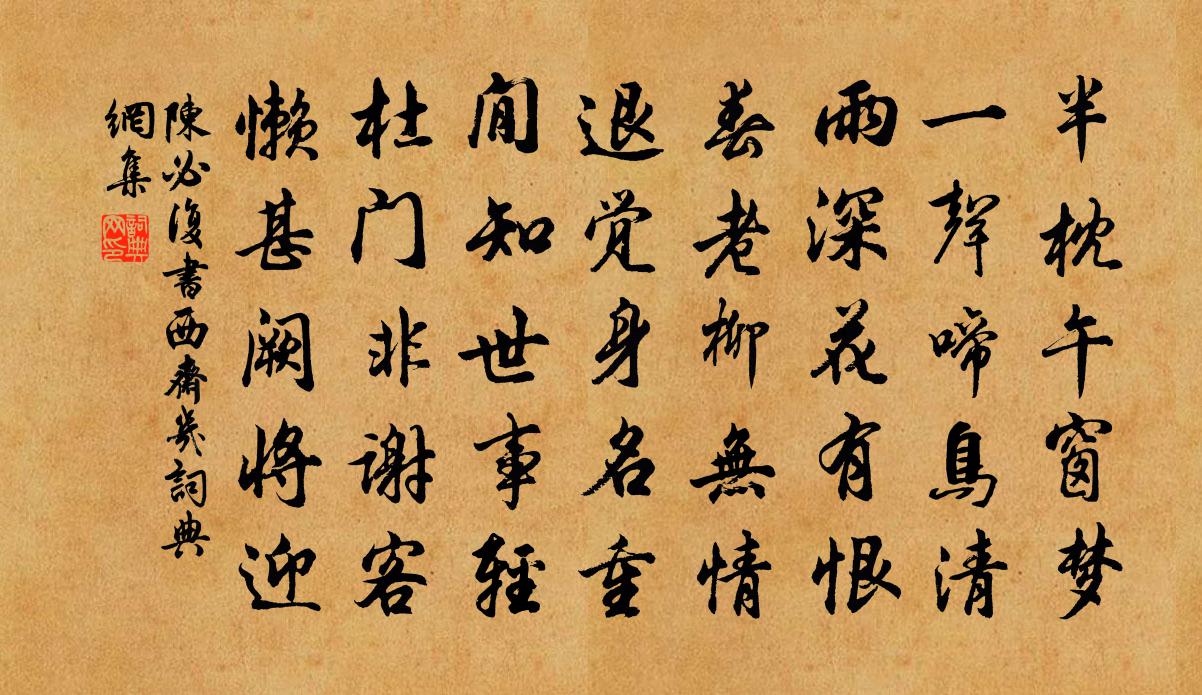 半枕午窗梦
一聲啼鳥清
雨深花有恨
春老柳無情
退觉身名重
閒知世事輕
杜门非謝客
懶甚阙將迎
陳必復書西齋幾詞典
網集
詞典网印